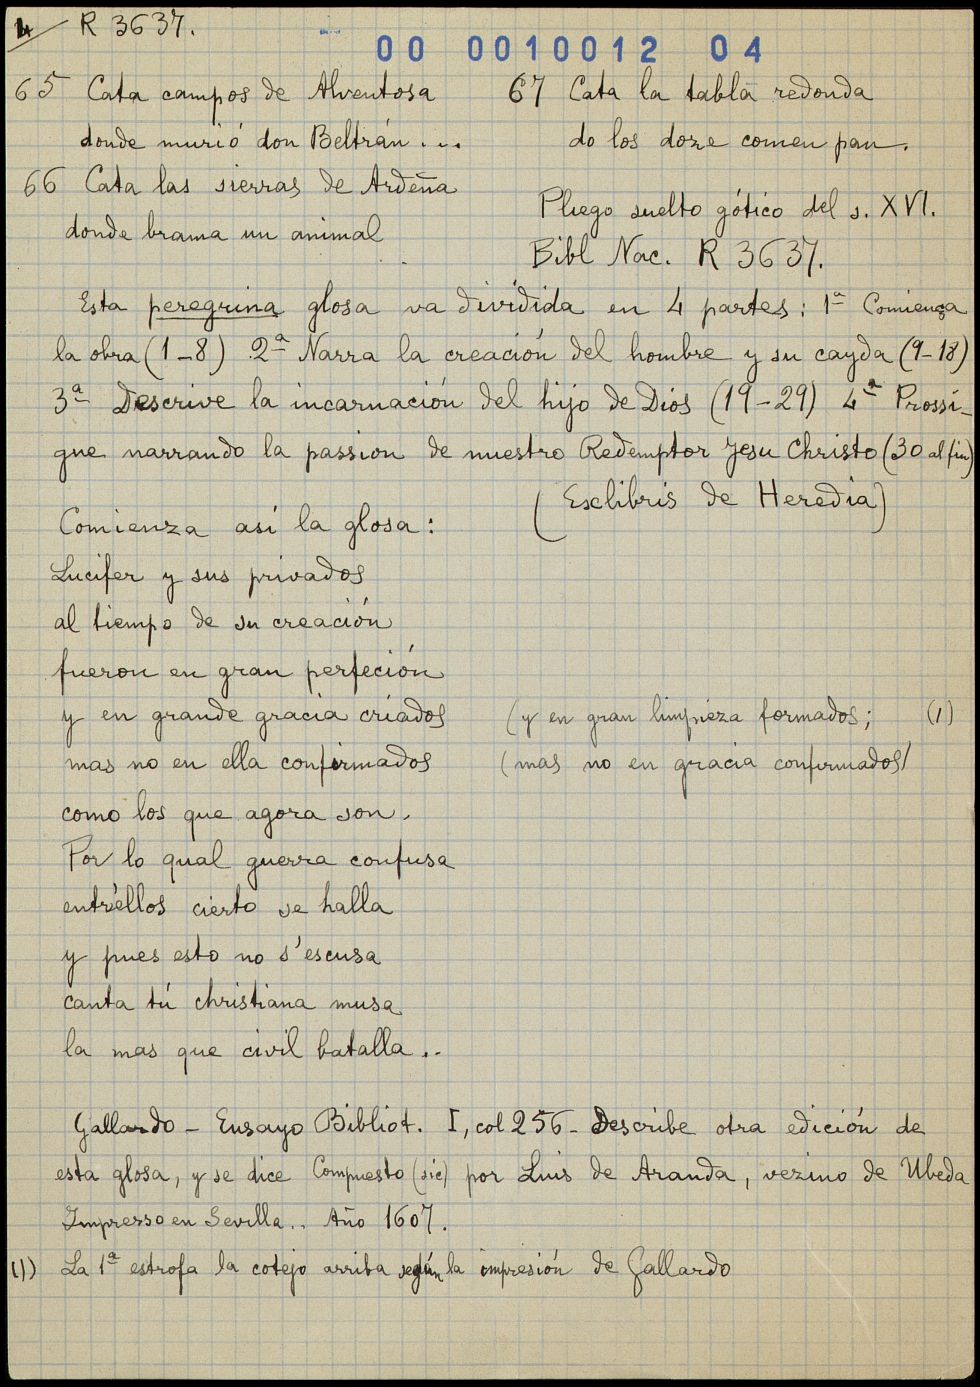 4/ R 3637.
00 0010012 04
65 Cata campos de Alventosa
donde murió don Beltrán...
66 Cata las sierras de Ardeña
donde brama un animal
67 Cata la tabla redonda
do los doze comen pan.
Pliego suelto gótico del s. XVI.
Bibl Nac. R 3637.
Esta peregrina glosa va dividida en 4 partes: 1ª Comiença
la obra (1-8) 2ª Narra la creación del hombre y su cayda (9-18)
3ª Descrive la incarnación del hijo de Dios (19-29) 4ª Prossi-
gue narrando la passion de nuestro Redemptor Jesu Christo (30 al fin)
(Exlibris de Heredia)
Comienza así la glosa:
Lucifer y sus privados
al tiempo de su creación
fueron en gran perfeción
y en grande gracia criados (y en gran limpieza formados; (1)
mas no en ella confirmados (mas no en gracia confirmados/
como los que agora son.
Por lo qual guerra confusa
entr'ellos cierto se halla
y pues esto no s'escusa
canta tú christiana musa
la mas que civil batalla..
Gallardo - Ensayo Bibliot. I, col 256 - Describe otra edición de
esta glosa, y se dice Compuesto (sic) por Luis de Aranda, vezino de Ubeda
Impresso en Sevilla.. Año 1607.
(1) La 1ª estrofa la cotejo arriba según la impresión de Gallardo